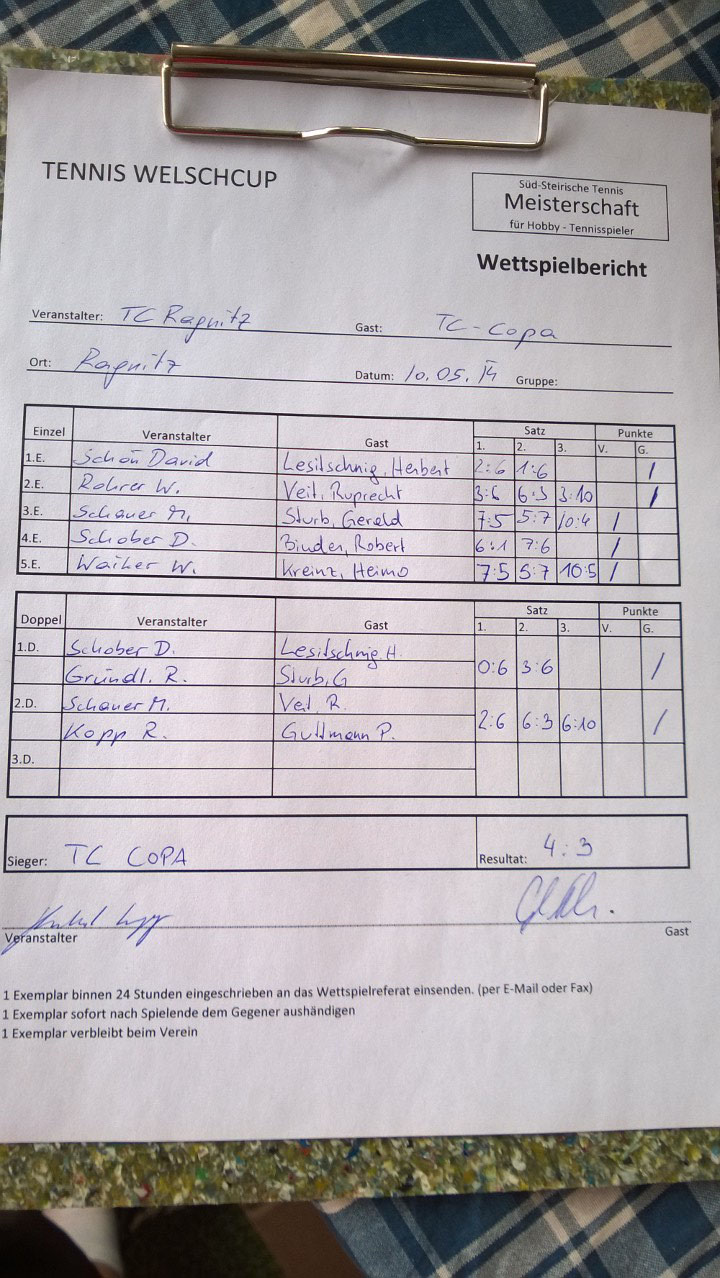 TENNIS WELSCHCUP
Süd-Steirische Tennis
Meisterschaft
für Hobby - Tennisspieler
Wettspielbericht
Veranstalter: TC Ragnitz Gast: TC-Copa
Ort: Ragnitz Datum: 10.05.14 Gruppe:
Einzel Veranstalter Gast Satz Punkte
1. 2. 3. V. G.
1.E. Schön David Lesitschnig, Herbert 2:6 1:6 /
2.E. Rohrer W. Veit, Ruprecht 3:6 6:3 3:10 /
3.E. Schauer M. Sturb, Gerald 7:5 5:7 10:4 /
4.E. Schober D. Binder, Robert 6:1 7:6 /
5.E. Walher W. Kreinz, Heimo 7:5 5:7 10:5 /
Doppel Veranstalter Gast Satz Punkte
1. 2. 3. V. G.
1.D. Schober D. Lesitschnig. H.
Gründl. R. Sturb, G 0:6 3:6 /
2.D. Schauer M. Veit, R.
Kopp R. Guttmann P. 2:6 6:3 6:10 /
3.D.
Sieger: TC COPA Resultat: 4:3
Veranstalter Gast
1 Exemplar binnen 24 Stunden eingeschrieben an das Wettspielreferat einsenden. (per E-Mail oder Fax)
1 Exemplar sofort nach Spielende dem Gegener aushändigen
1 Exemplar verbleibt beim Verein